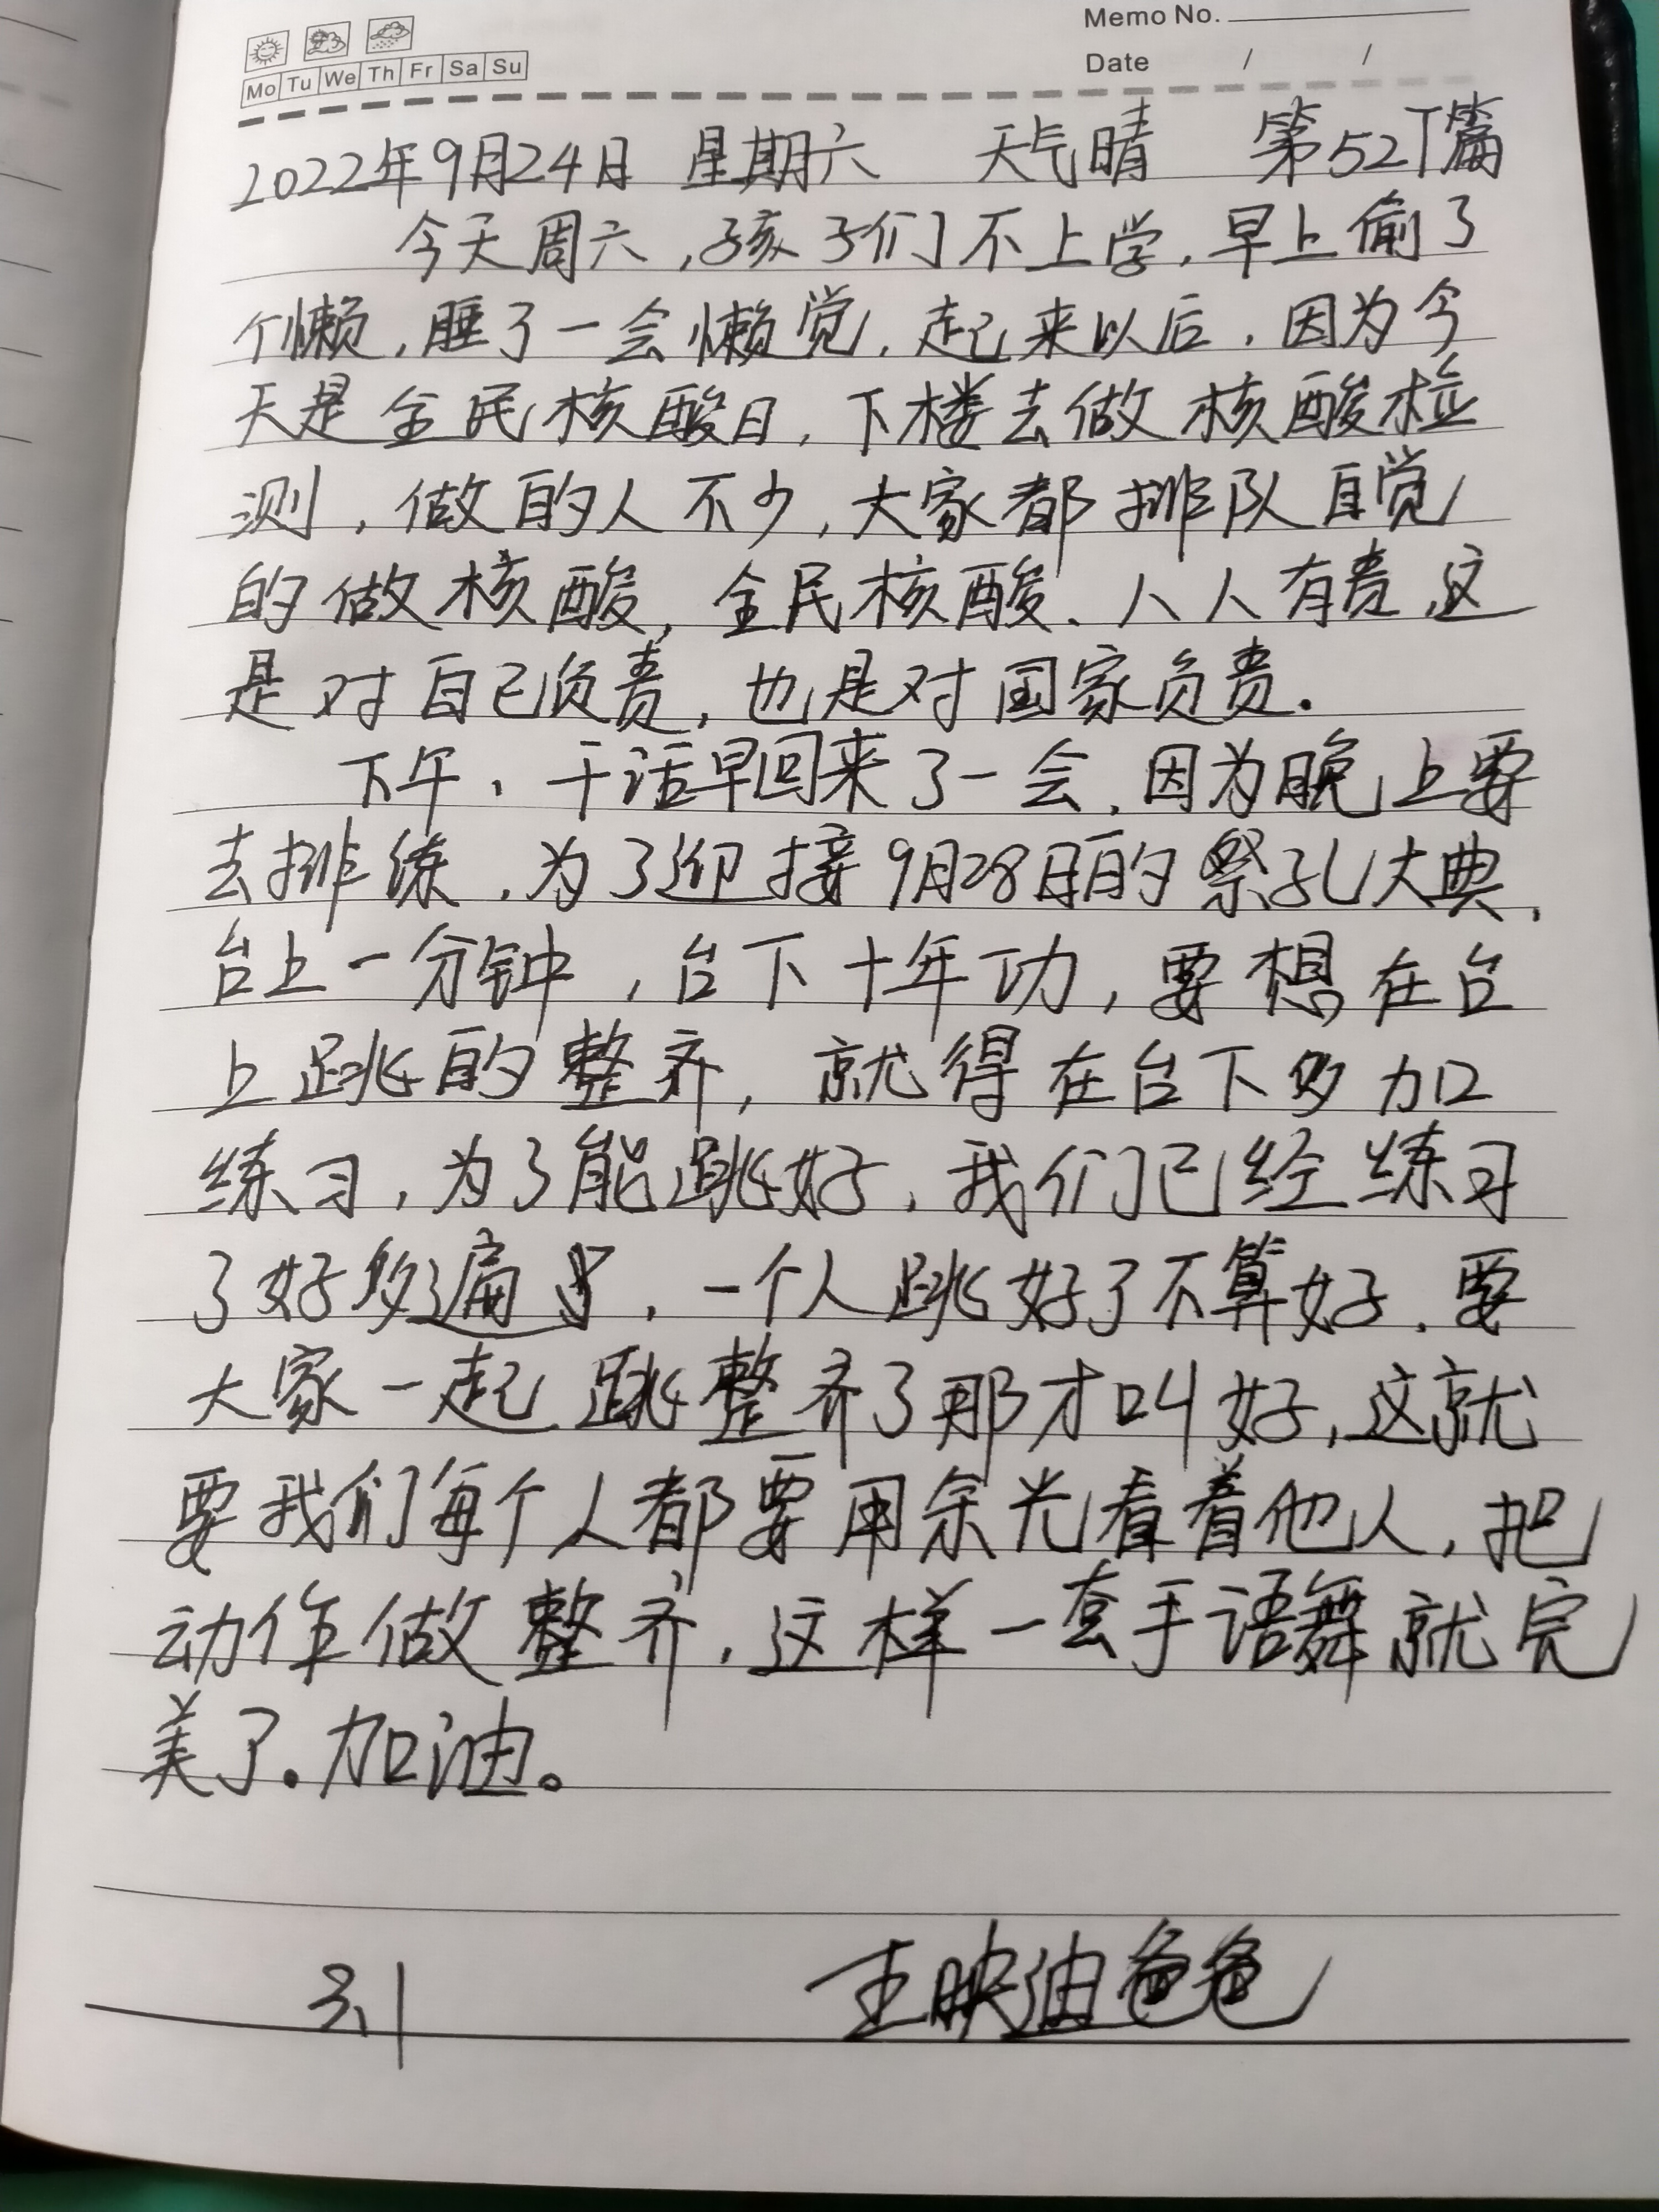 Memo No.
Mo Tu We Th Fr Sa Su
Date / /
2022年9月24日 星期六 天气晴 第527篇
今天周六,孩子们不上学,早上偷了
个懒,睡了一会懒觉,起来以后,因为今
天是全民核酸日,下楼去做核酸检
测,做的人不少,大家都排队自觉
的做核酸,全民核酸、人人有责,这
是对自己负责,也是对国家负责.
下午、干活早回来了一会,因为晚上要
去排练,为了迎接9月28日的祭孔大典,
台上一分钟,台下十年功,要想在台
上跳的整齐,就得在台下多加
练习,为了能跳好,我们已经练习
了好多遍了,一个人跳好了不算好,要
大家一起跳整齐了那才叫好,这就
要我们每个人都要用余光看着他人,把
动作做整齐,这样一套手语舞就完
美了.加油。
王映迪爸爸